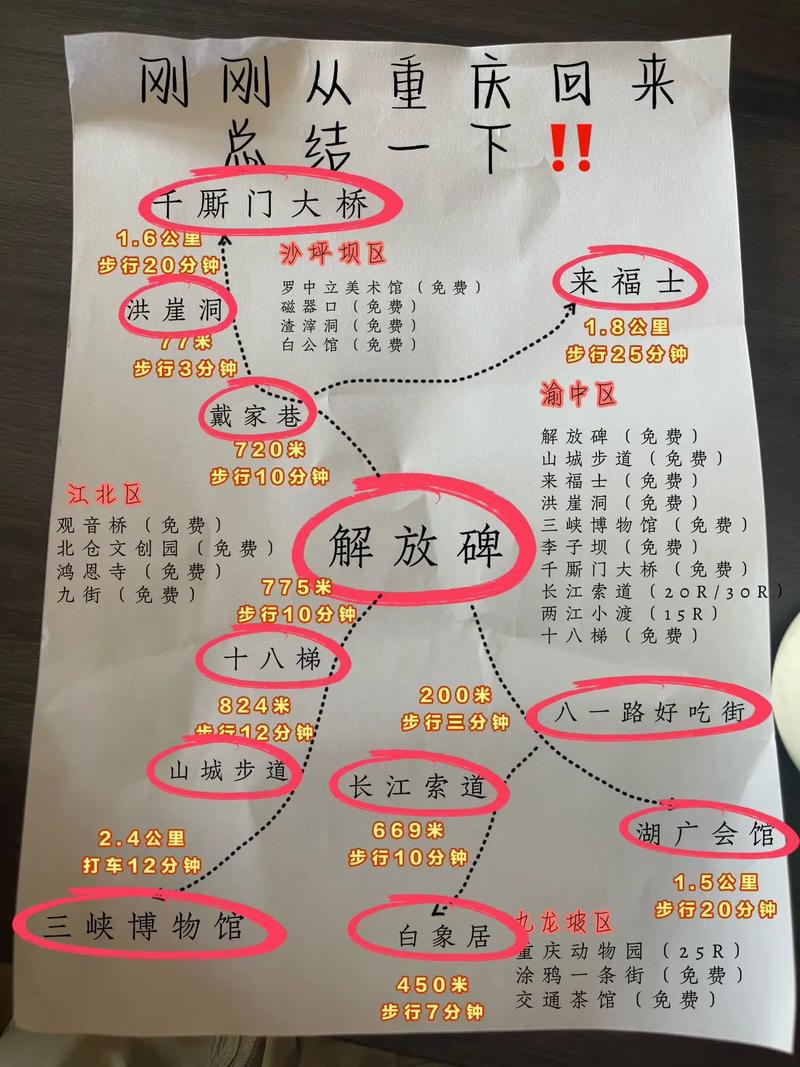 刚刚从重庆回来
总结一下‼️
千厮门大桥
1.6公里
步行20分钟
沙坪坝区
罗中立美术馆（免费）
磁器口（免费）
渣滓洞（免费）
白公馆（免费）
来福士
1.8公里
步行25分钟
洪崖洞
77米
步行3分钟
戴家巷
720米
步行10分钟
渝中区
解放碑（免费）
山城步道（免费）
来福士（免费）
洪崖洞（免费）
三峡博物馆（免费）
李子坝（免费）
千厮门大桥（免费）
长江索道（20R/30R）
两江小渡（15R）
十八梯（免费）
江北区
观音桥（免费）
北仓文创园（免费）
鸿恩寺（免费）
九街（免费）
解放碑
775米
步行10分钟
十八梯
824米
步行12分钟
山城步道
2.4公里
打车12分钟
三峡博物馆
200米
步行三分钟
八一路好吃街
长江索道
669米
步行10分钟
湖广会馆
1.5公里
步行20分钟
白象居
450米
步行7分钟
九龙坡区
重庆动物园（25R）
涂鸦一条街（免费）
交通茶馆（免费）